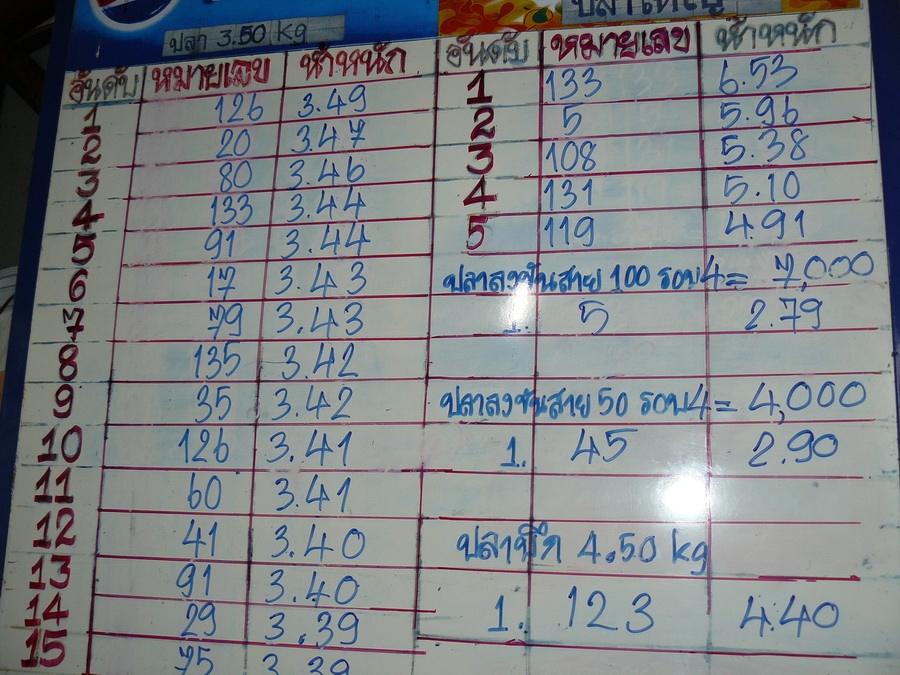 ปลา 3.50 kg
อันดับ หมายเลข น้ำหนัก
1 126 3.49
2 20 3.47
3 80 3.46
4 133 3.44
5 91 3.44
6 17 3.43
7 79 3.43
8 135 3.42
9 35 3.42
10 126 3.41
11 60 3.41
12 41 3.40
13 91 3.40
14 29 3.39
15 75 3.39
ปลาใหญ่
อันดับ หมายเลข น้ำหนัก
1 133 6.53
2 5 5.96
3 108 5.38
4 131 5.10
5 119 4.91
ปลาลงขันสาย 100 รอบ4= 7,000
1. 5 2.79
ปลาลงขันสาย 50 รอบ4= 4,000
1. 45 2.90
4.50 kg
1. 123 4.40